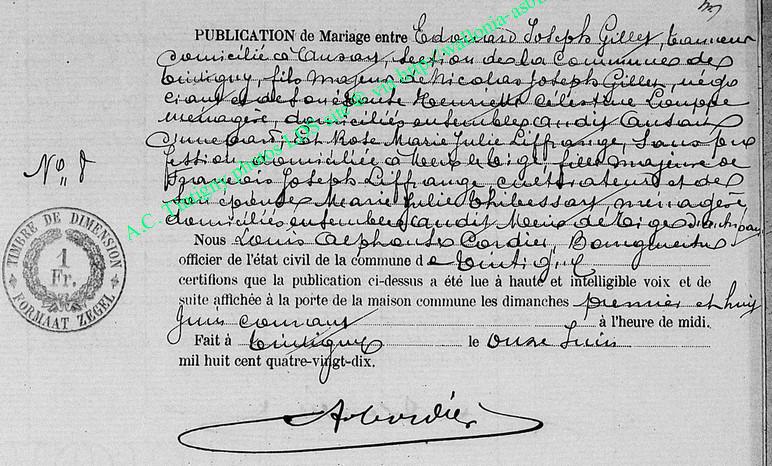 PUBLICATION de Mariage entre Edouard Joseph Gillet, tanneur
domicilié à Ansart, section de la Commune de
Tintigny, fils majeur de Nicolas Joseph Gillet, négo
ciant et de son épouse Henriette Célestine Loupe
ménagère, domiciliés ensemble audit Ansart
d'une part, Et Rose Marie Julie Liffrange, sans pro
fession, domiciliée à Meix le Tige, fille majeure de
François Joseph Liffrange, cultivateur et de
son épouse Marie Julie Thibessart, ménagère,
domiciliés ensemble audit Meix le Tige d'autre part
Nous Louis Alphonse Cordier, Bourgmestre
officier de l'état civil de la commune de Tintigny
certifions que la publication ci-dessus a été lue à haute et intelligible voix et de
suite affichée à la porte de la maison commune les dimanches premier et huit
Juin courant à l'heure de midi.
Fait à Tintigny le onze Juin
mil huit cent quatre-vingt-dix.
ACordier
N° 8
TIMBRE DE DIMENSION
1
Fr.
FORMAAT ZEGEL
A.C. Tintigny photos LGS site © via http://wallonia-asbl